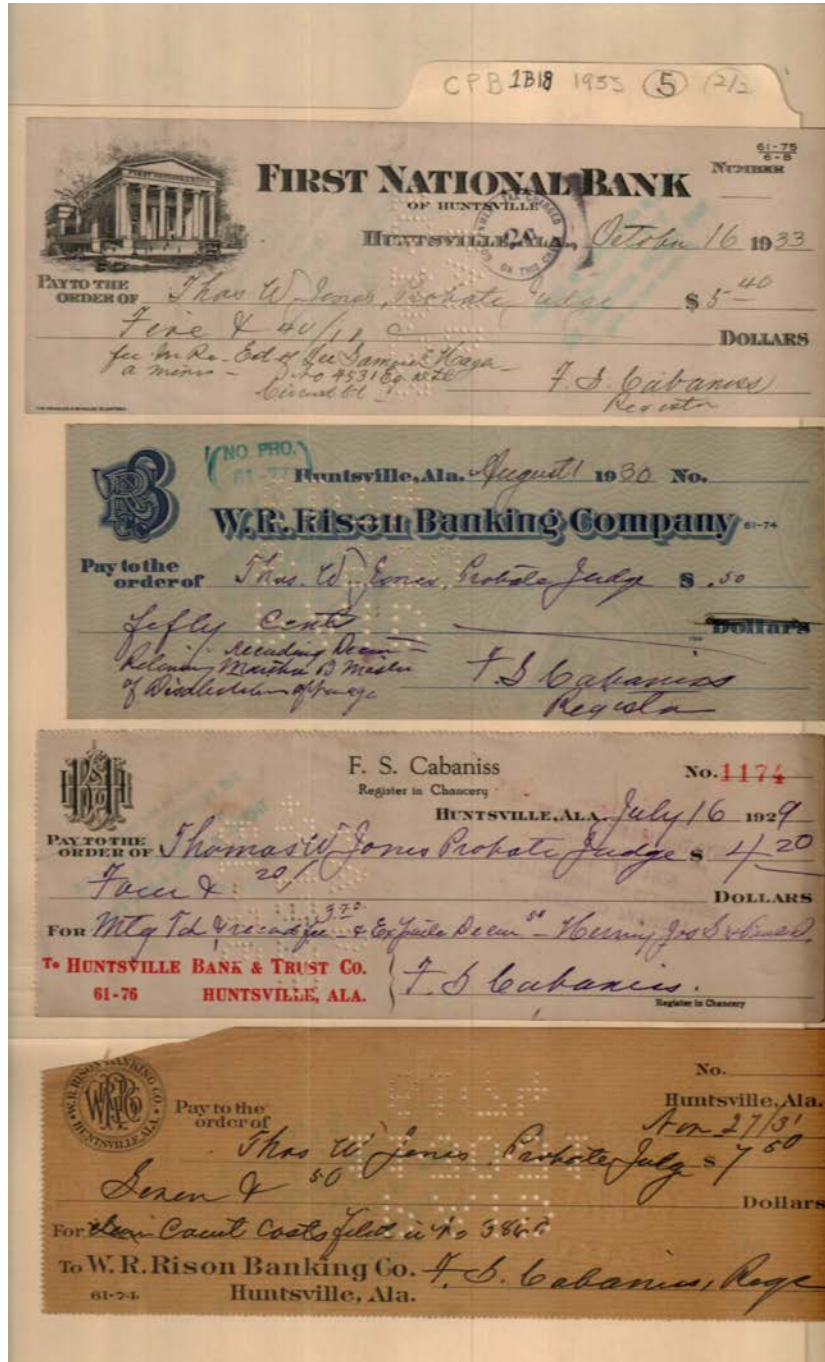 CPB 1B18 1933 5 (2/2
61-75
6-8
FIRST NATIONAL BANK
NUMBER
OF HUNTSVILLE
HUNTSVILLE, ALA., October 16 1933
PAY TO THE
ORDER OF Thos W Jones, Probate Judge $ 5 40
Five & 40/100 DOLLARS
fee In Re- Est of
a minor - No 4531 Eq
Circuit Ct
F. S. Cabaniss
Register
NO PRO.
61-77
Huntsville, Ala. August 1 1930 No.
W.R. Rison Banking Company 61-74
Pay to the
order of Thos. W Jones, Probate Judge $ .50
fifty cents Dollars
recording Decree
Relieving Martha B
of Disabilities of nonage
F. S Cabaniss
Register
F. S. Cabaniss
Register in Chancery
No. 1174
HUNTSVILLE, ALA. July 16 1929
PAY TO THE
ORDER OF Thomas W Jones Probate Judge $ 4 20
Four & 20/ DOLLARS
3.70
FOR Mtg Td & record fee & Ex parte Decree 50 - Jos S
To HUNTSVILLE BANK & TRUST CO.
61-76 HUNTSVILLE, ALA.
F. S Cabaniss.
Register in Chancery
W.R. RISON BANKING CO.
HUNTSVILLE, ALA.
No.
Huntsville, Ala.
Nov 27/31
Pay to the
order of
Thos W Jones Probate Judg $ 7 50
Seven & 50 Dollars
For Court Costs filed in No
To W.R. Rison Banking Co.
61-74 Huntsville, Ala.
F. S. Cabaniss, Reg